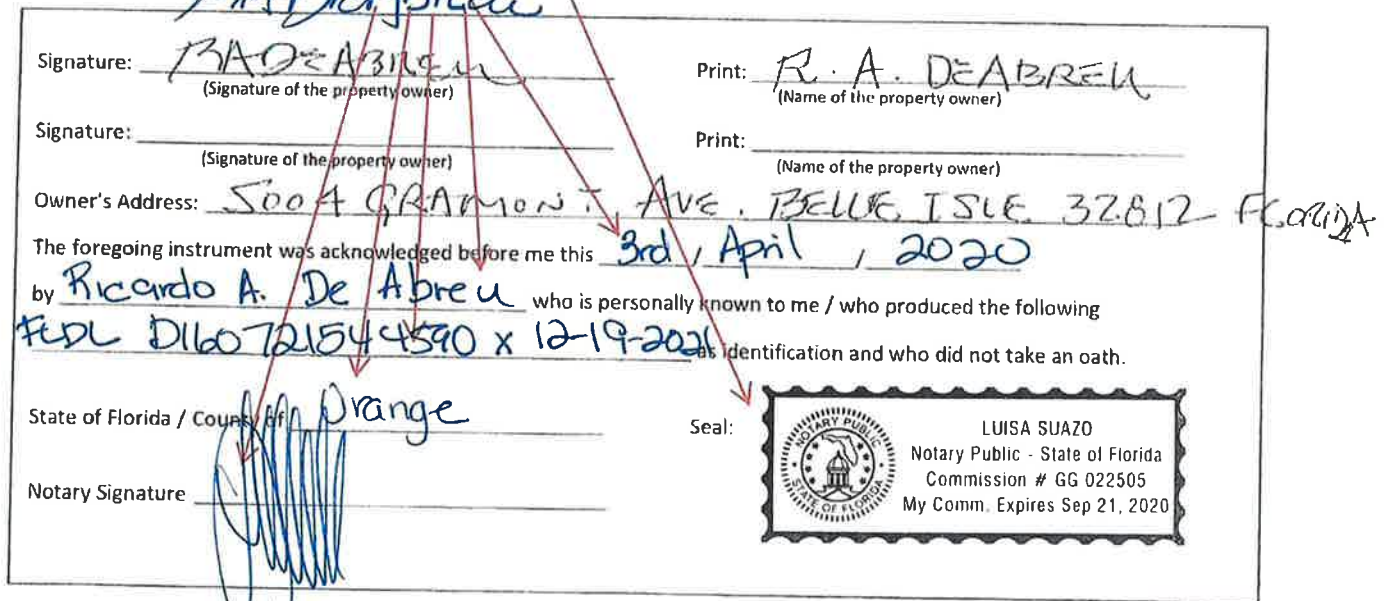 Signature: RADEABREU Print: R. A. DEABREU
(Signature of the property owner) (Name of the property owner)
Signature: Print:
(Signature of the property owner) (Name of the property owner)
Owner's Address: 5004 GRAMONT AVE. BELLE ISLE 32812 FLORIDA
The foregoing instrument was acknowledged before me this 3rd, April, 2020
by Ricardo A. De Abreu who is personally known to me / who produced the following
FLDL D160721544590 x 12-19-2021 as identification and who did not take an oath.
State of Florida / County of Orange
Notary Signature
Seal:
NOTARY PUBLIC
STATE OF FLORIDA
LUISA SUAZO
Notary Public - State of Florida
Commission # GG 022505
My Comm. Expires Sep 21, 2020